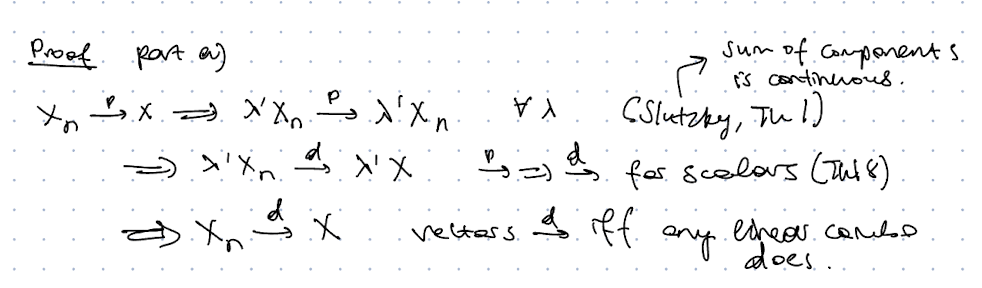 Proof part a)
sum of components
is continuous.
Xn →p X ⟹ λ'Xn →p λ'Xn ∀ λ (Slutzky, Th 1)
⟹ λ'Xn →d λ'X →p ⟹ →d for scalars (Th18)
⟹ Xn →d X vectors →d iff any linear combo
does.